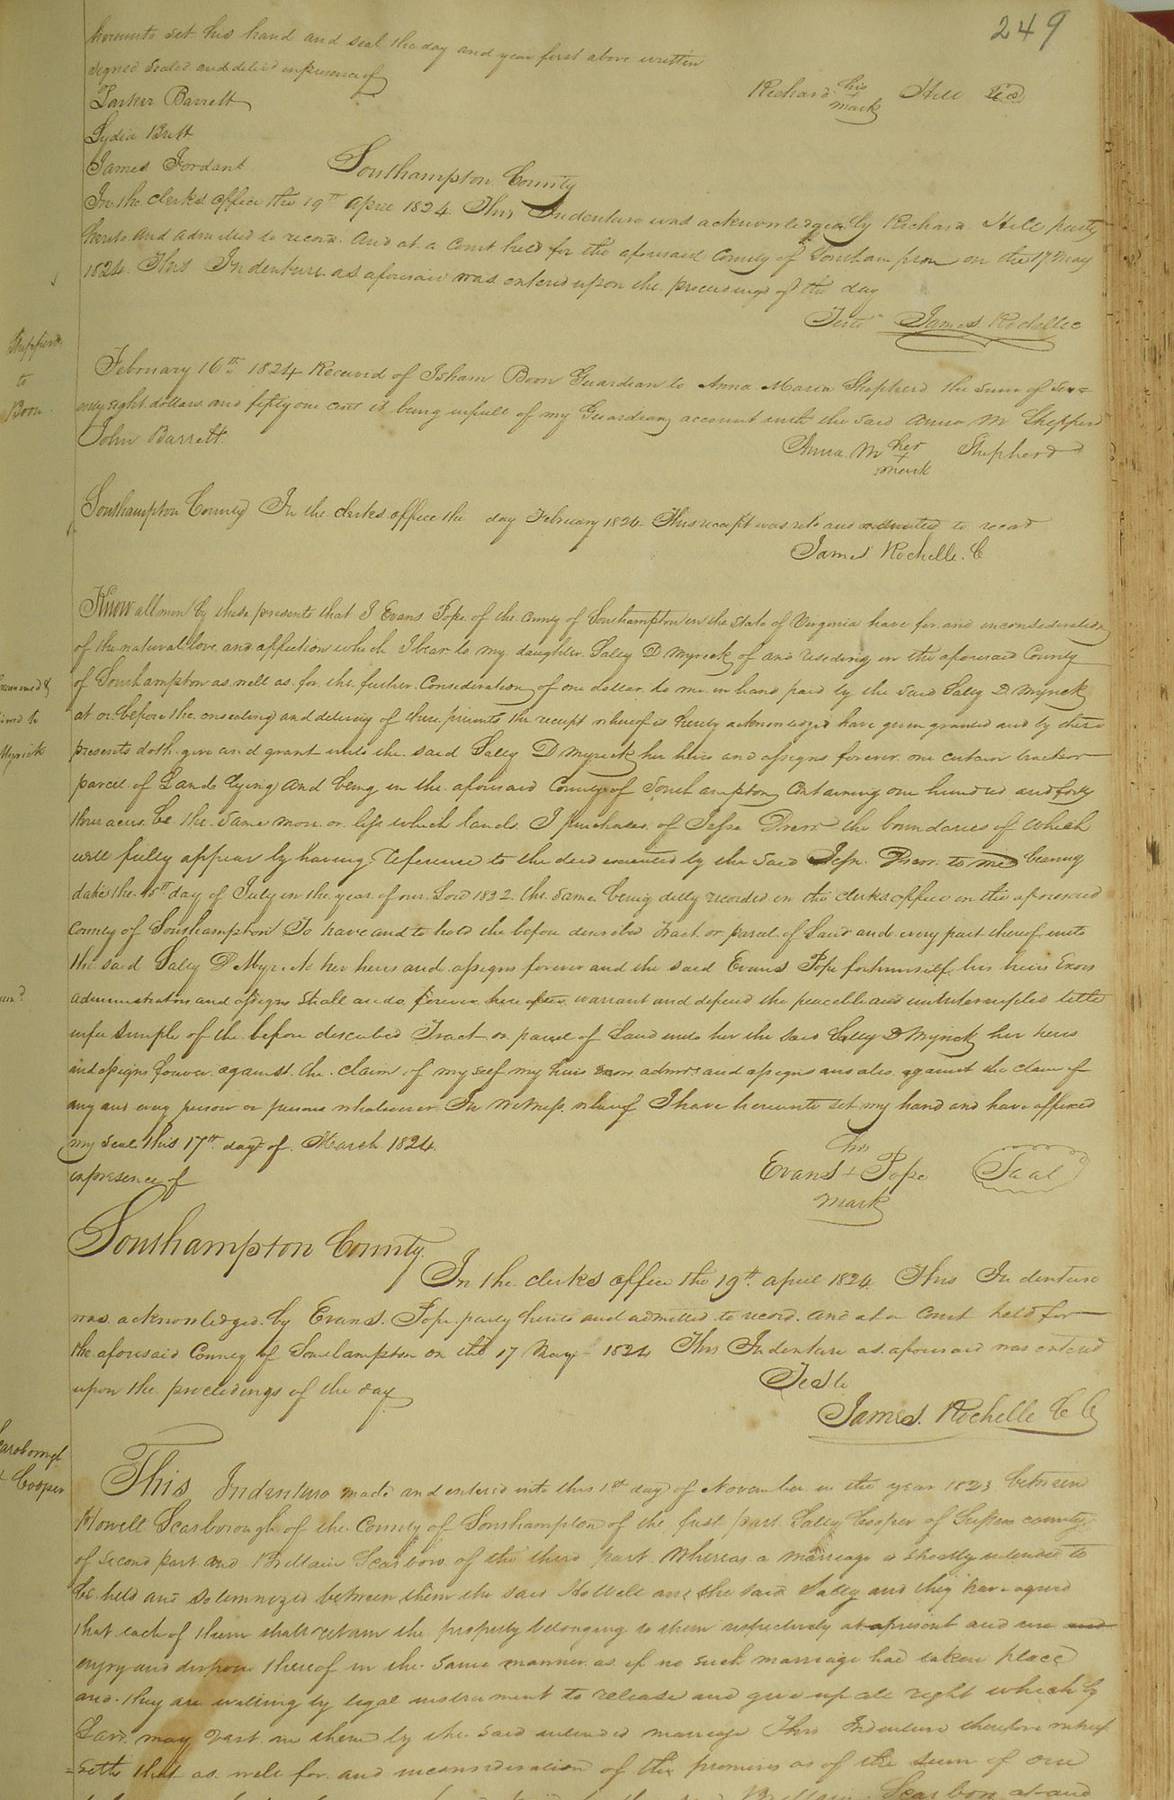 249
hereunto set his hand and seal the day and year first above written
signed sealed and delivd in presence of
Richard his + mark Hill
Barrett
Lydia Britt
James Jordant
Southampton County
In the clerks office the 19th April 1824 This Indenture was acknowledged by Richard Hill party
hereto and admitted to record. And at a Court held for the aforesaid County of Southampton on the 17 May
1824 This Indenture as aforesaid was entered upon the proceedings of the day
Teste James Rochelle c
Shepherd
to
Boon
February 16th 1824 Received of Isham Boon Guardian to Anna Maria Shepherd the sum of
eight dollars and fifty one cents it being in full of my Guardian account with the said Anna M Shepherd
John Barrett
Anna M her + mark Shepherd
Southampton County In the clerks office the day February 1824 This receipt was retd and admitted to record
James Rochelle. C
Know all men by these presents that I Evans Pope of the County of Southampton in the State of Virginia have for and in consideration
of the natural love and affection which I bear to my daughter Sally D Myrick of and residing in the aforesaid County
of Southampton as well as for the further Consideration of one dollar to me in hand paid by the said Sally D. Myrick
at or before the ensealing and delivery of these presents the receipt whereof is hereby acknowledged have given granted and by these
presents doth give and grant unto the said Sally D Myrick her heirs and assigns forever one certain tract or
parcel of Land lying and being in the aforesaid County of Southampton Containing one hundred and forty
three acres be the same more or less which lands I purchased of Jesse the boundaries of which
will fully appear by having reference to the deed executed by the said Jesse to me bearing
date the 15th day of July in the year of our Lord the same being duly recorded in the clerks office in the aforesaid
County of Southampton To have and to hold the before described Tract or parcel of Land and every part thereof unto
the said Sally D Myrick her heirs and assigns forever and the said Evans Pope for himself his heirs Exors
administrators and assigns shall and do forever hereafter warrant and defend the peaceable and uninterrupted title
in fee simple of the before described Tract or parcel of Land unto her the said Sally D Myrick her heirs
and assigns forever against the claim of my self my heirs exors admrs and assigns and also against the claim of
any and every person or persons whatsoever In Witness whereof I have hereunto set my hand and have affixed
my seal this 17th day of March 1824.
in presence of
Evans his + mark Pope Seal
Myrick
Southampton County
In the clerks office the 19th April 1824 This Indenture
was acknowledged by Evans Pope party hereto and admitted to record. And at a Court held for
the aforesaid County of Southampton on the 17 May 1824 This Indenture as aforesaid was entered
upon the proceedings of the day
Teste
James. Rochelle C C
Scarborough
Cooper
This Indenture made and entered into this 1st day of November in the year 1823 between
Howell Scarborough of the County of Southampton of the first part Sally Cooper of Sussex county
of second part and Brittain Scarboro of the third part Whereas a marriage is shortly intended to
be held and solemnized between them the said Howell and the said Sally and they have agreed
that each of them shall retain the property belonging to them respectively at present and use and
enjoy and dispose thereof in the same manner as if no such marriage had taken place
and they are willing by legal instrument to release and give up all right which by
Law may vest in them by the said intended marriage This Indenture therefore witness
=seth that as well for and in consideration of the premises as of the sum of one